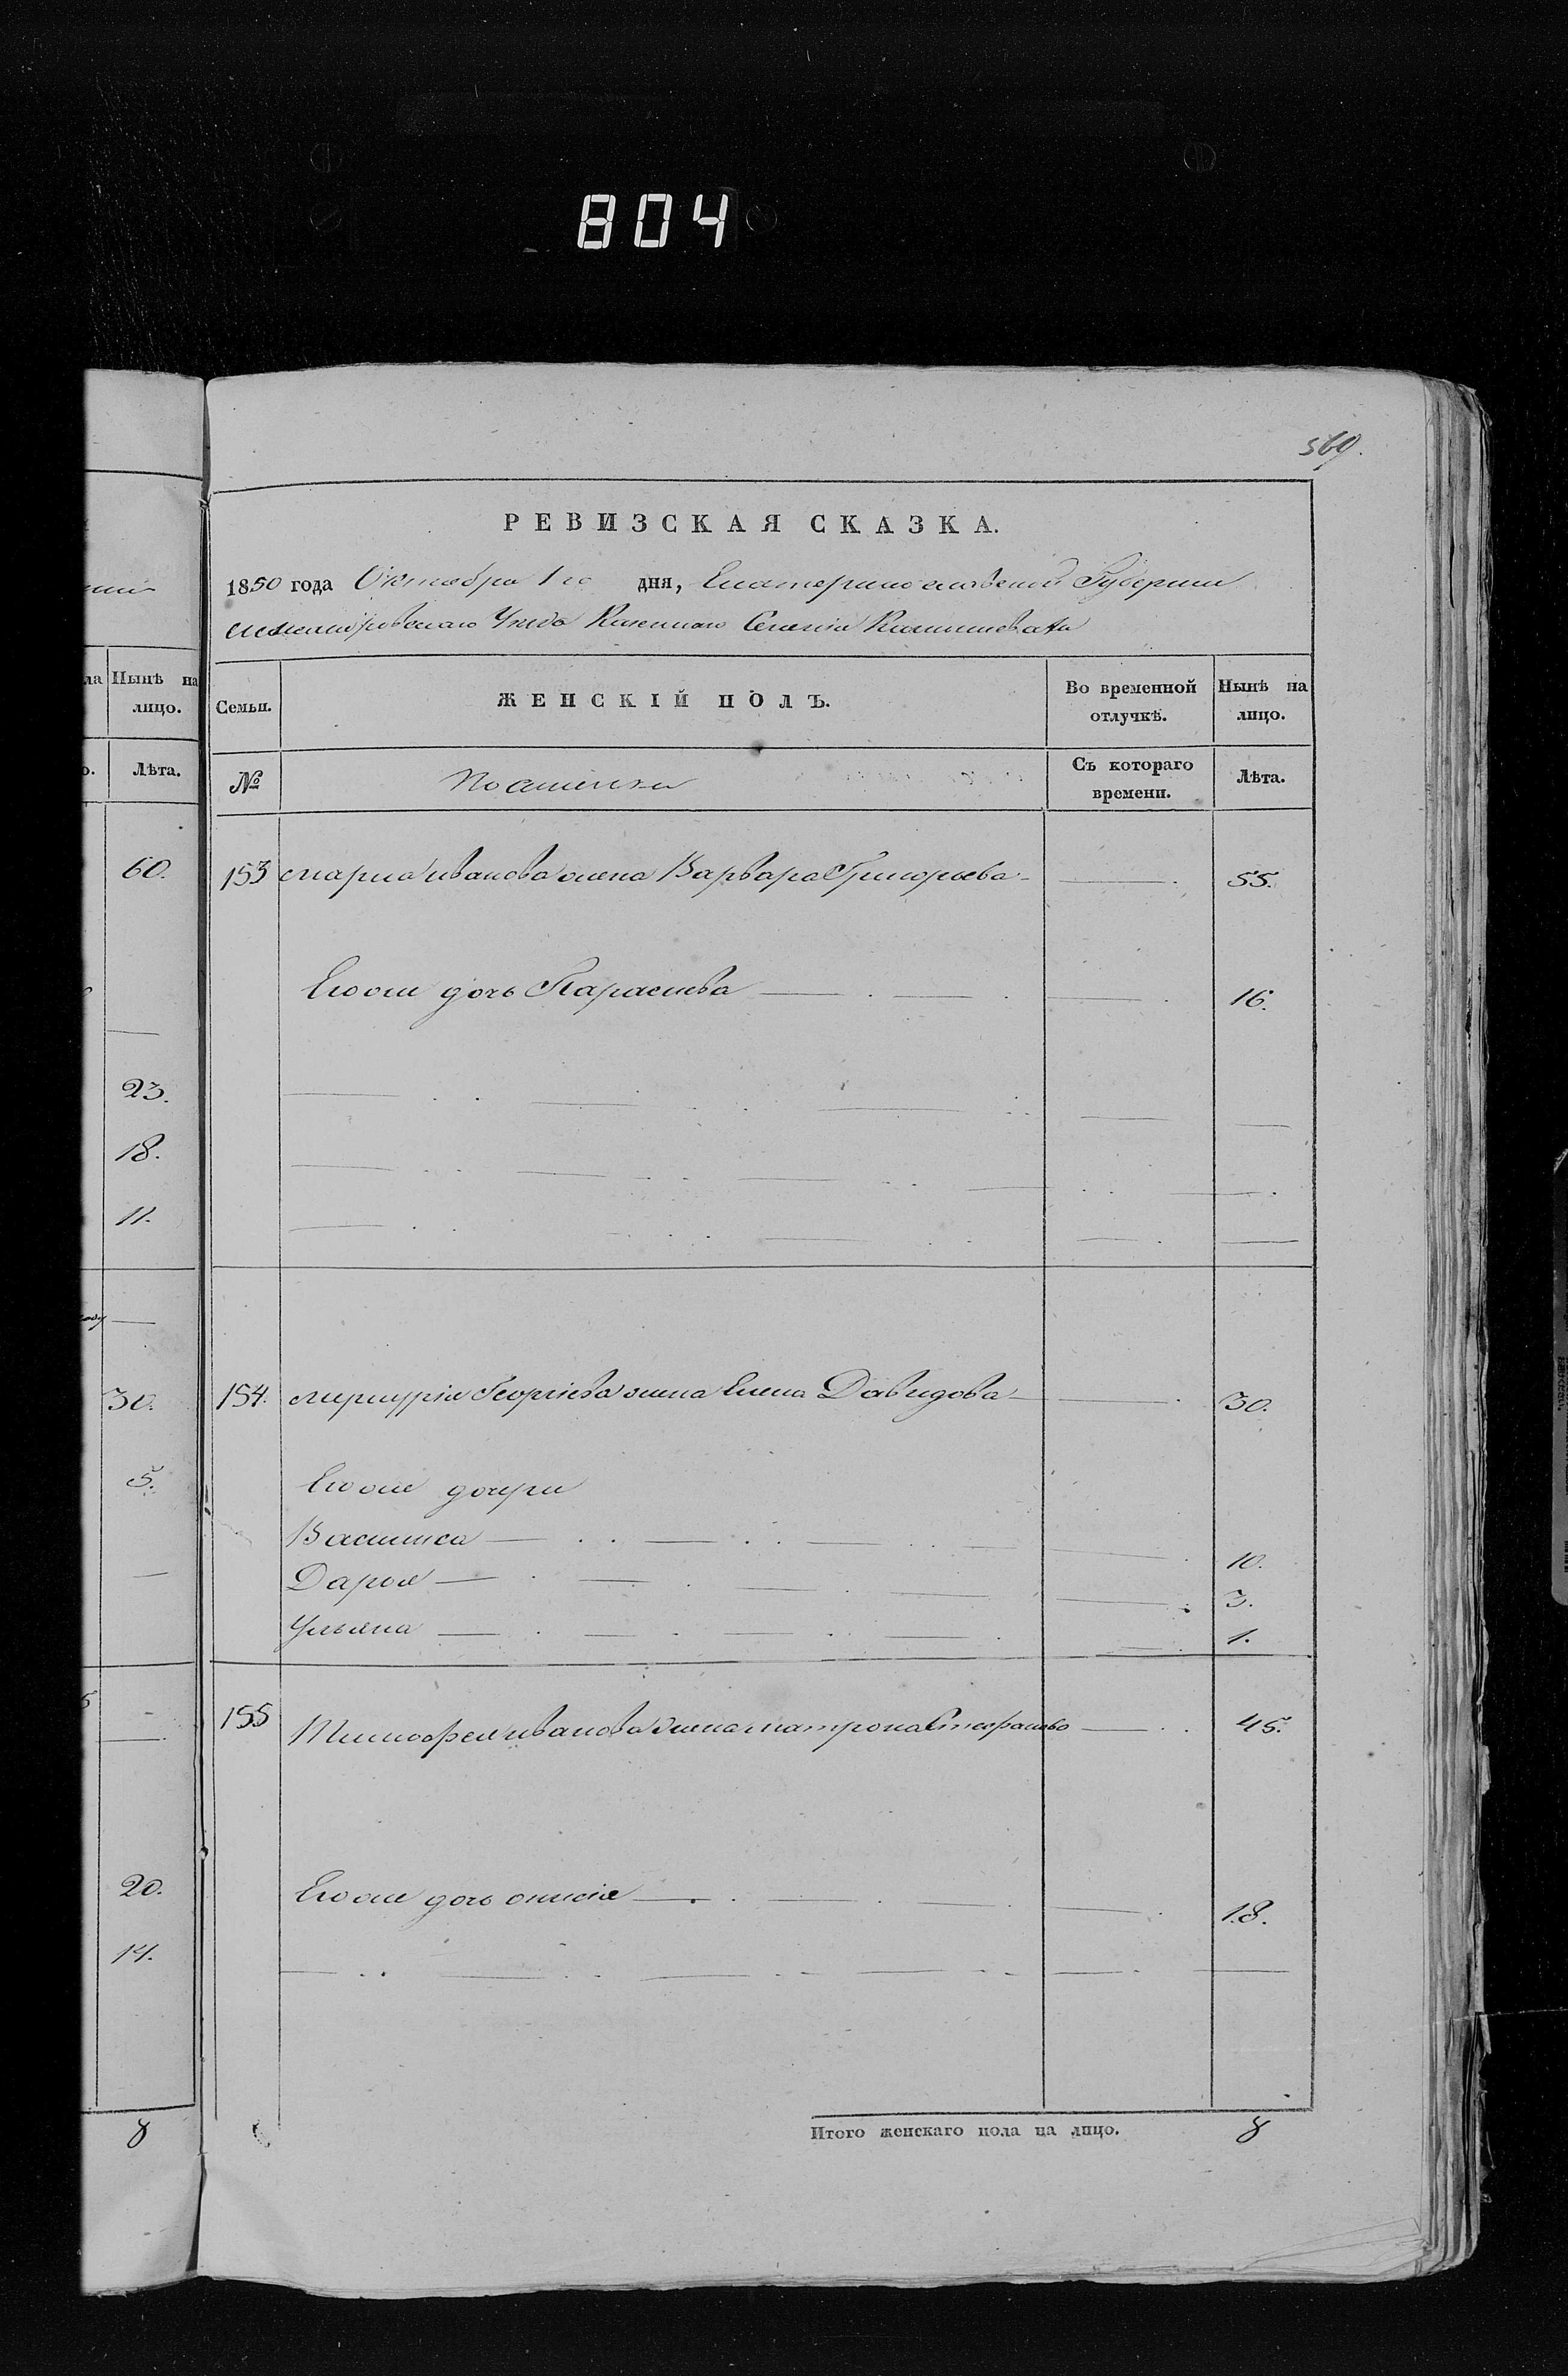 804
569.
РЕВИЗСКАЯ СКАЗКА.
1850 года Октября 1го дня, Екатеринославской Губернии
Александровскаго Уезда Казеннаго Селенія
Нынѣ на лицо.
Лѣта.
60.
23.
18.
11.
30.
5.
20.
14.
8
Семьи. ЖЕНСКІЙ ПОЛЪ. Во временной отлучкѣ. Нынѣ на лицо.
№ Съ котораго времени. Лѣта.
153 Марка Иванова жена Варвара Григорьева 55.
Егоже дочь Параскева 16.
154. Меркурія Георгіева жена Елена Давидова 30.
Егоже дочери
Василиса 10.
Дарья 3.
Ульяна 1.
155 Тимофея Иванова жена Матрона Стефанова 45.
Егоже дочь 18.
Итого женскаго пола на лицо. 8